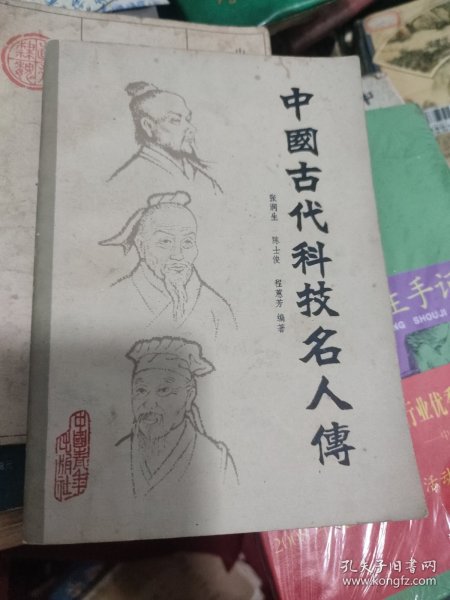 中國古代科技名人傳
张润生 陈士俊 程蕙芳 编著
中國青年
出版社
生手记
NG SHOUJI
行业优秀
活动
2008
孔夫子旧书网
www.kongfz.com